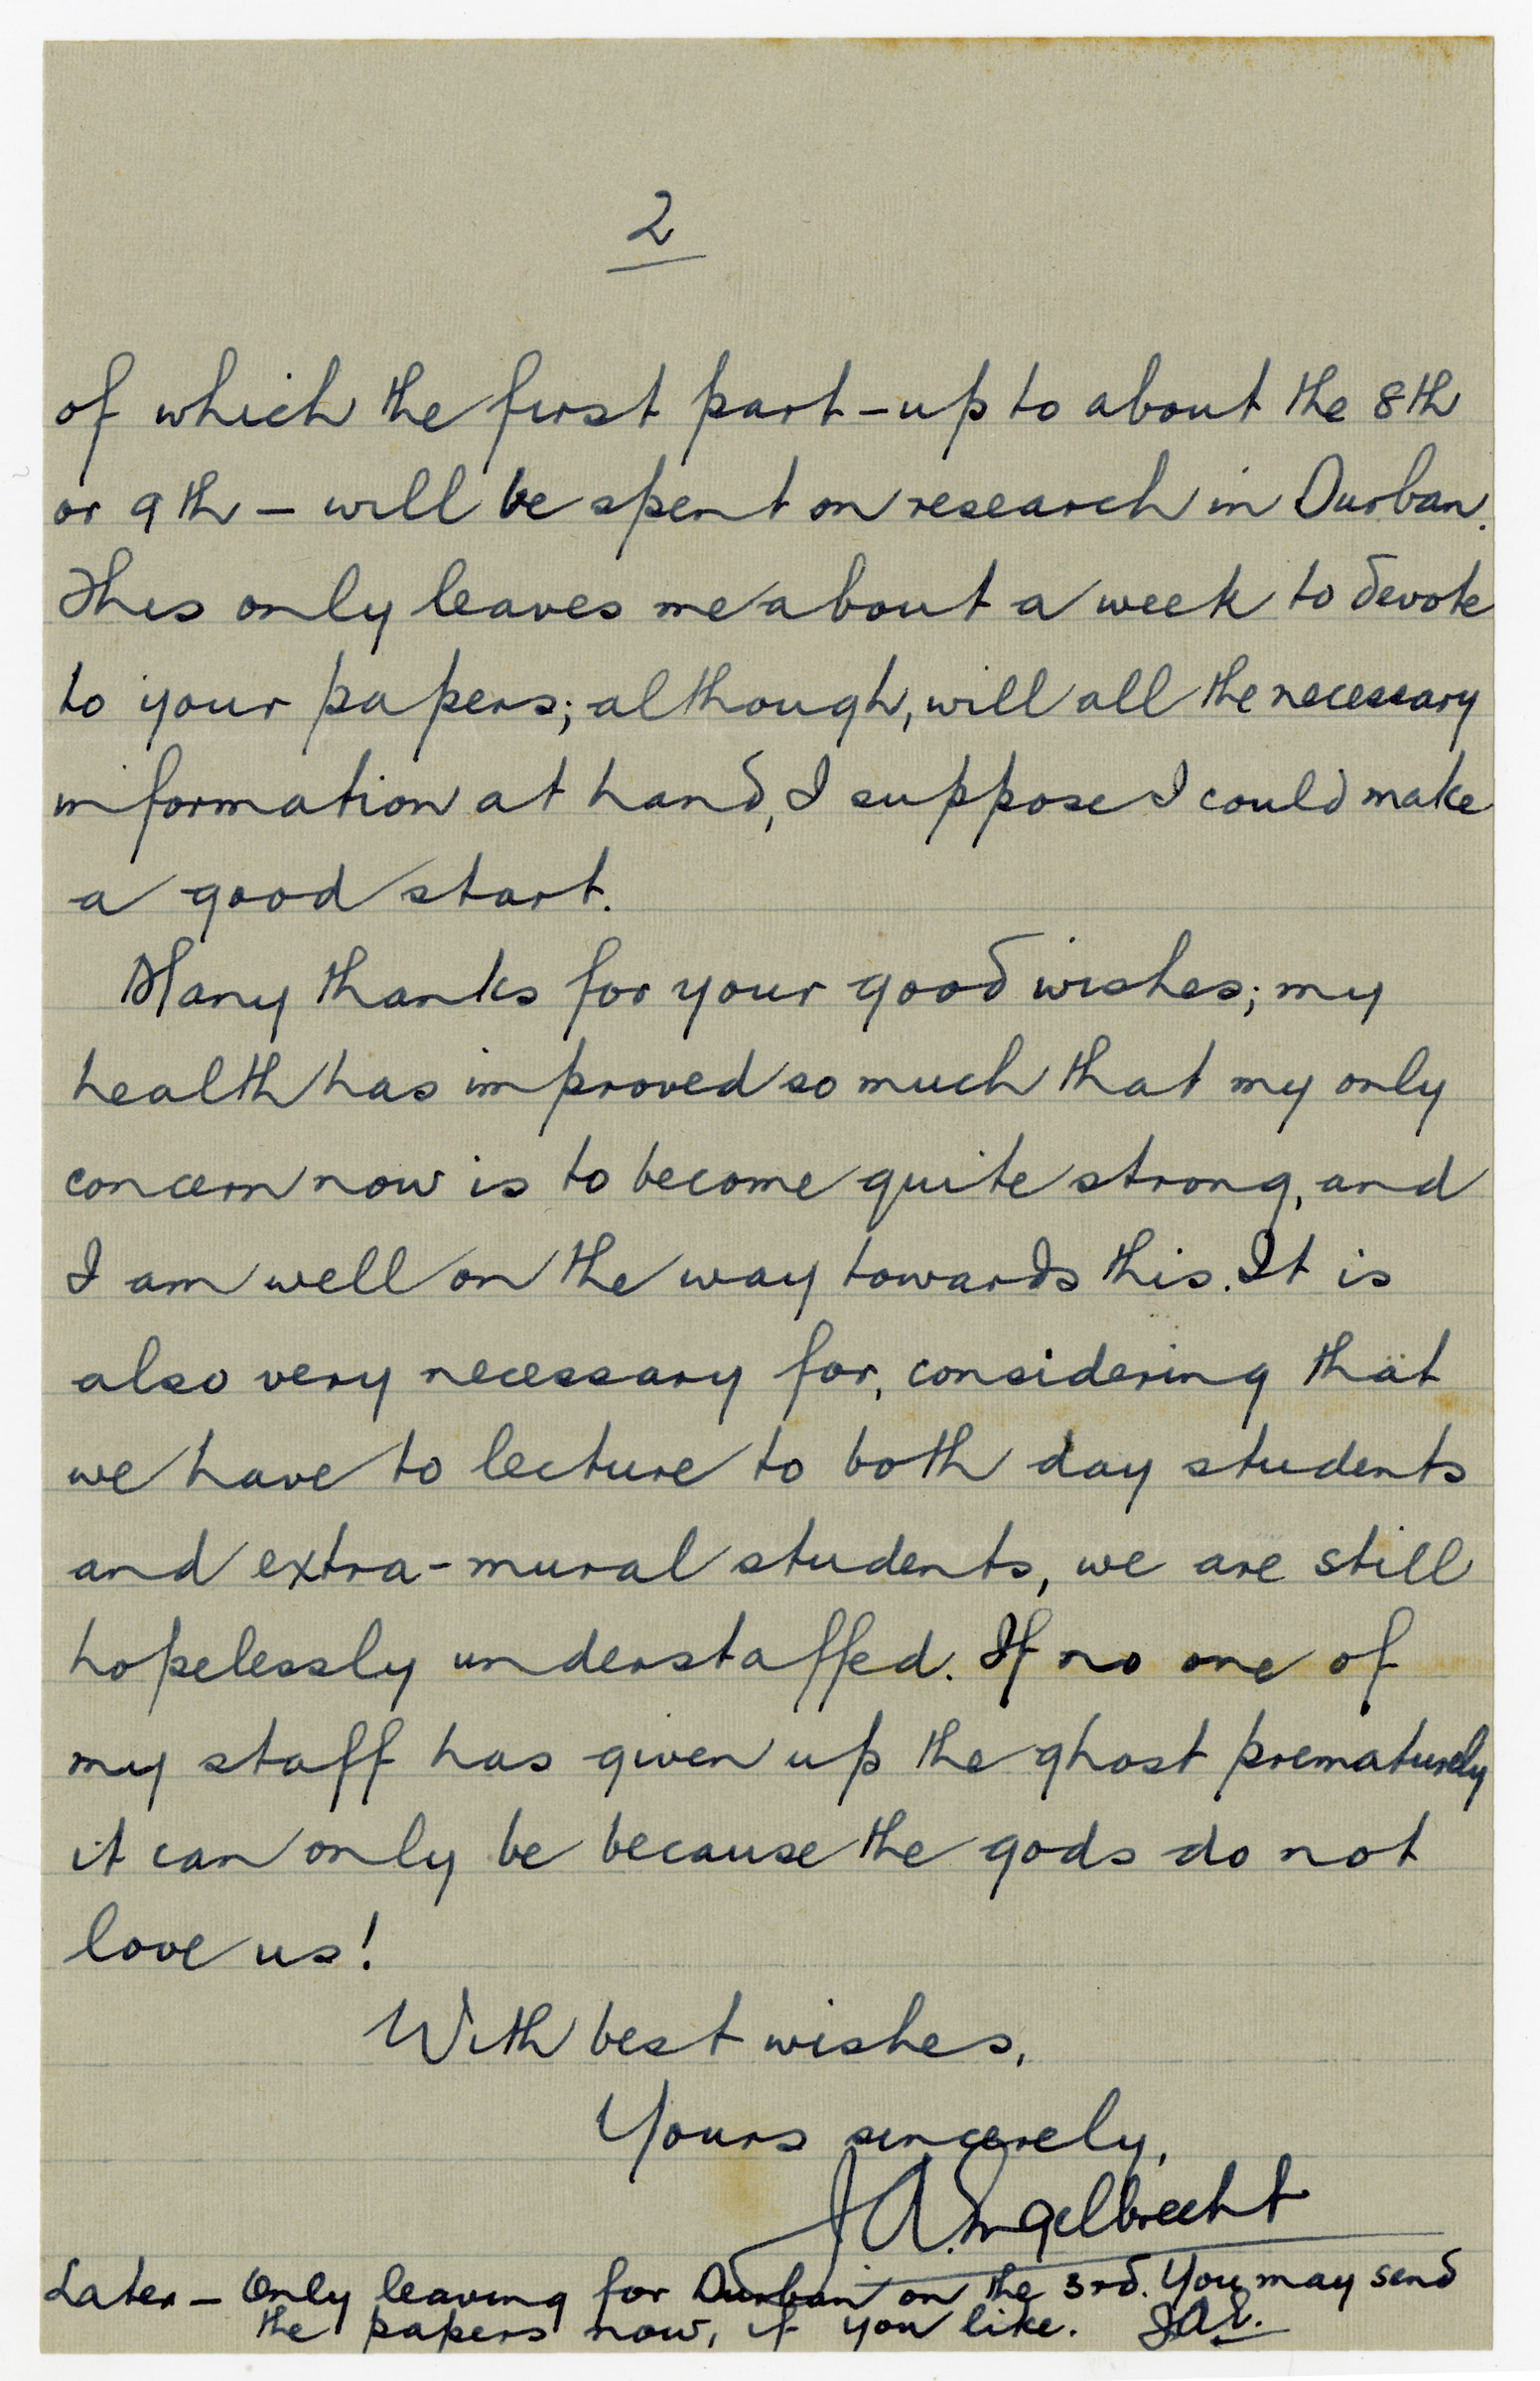 2
of which the first part – up to about the 8th
or 9th – will be spent on research in Durban.
This only leaves me about a week to devote
to your papers; although, will all the necessary
information at hand, I suppose I could make
a good start.
Many thanks for your good wishes; my
health has improved so much that my only
concern now is to become quite strong, and
I am well on the way towards this. It is
also very necessary for, considering that
we have to lecture to both day students
and extra-mural students, we are still
hopelessly understaffed. If no one of
my staff has given up the ghost prematurely
it can only be because the gods do not
love us!
With best wishes,
Yours sincerely,
J A. Engelbrecht
Later – Only leaving for Durban on the 3rd. You may send
the papers now, if you like. JAE.